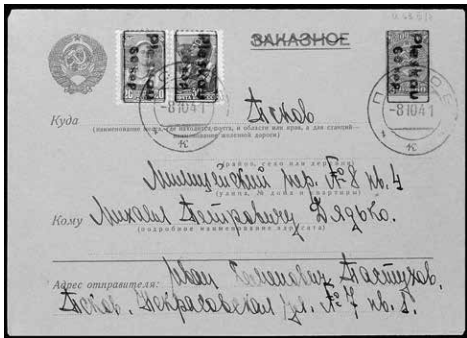 ЗАКАЗНОЕ
Pleskau 60 коп
Pleskau 60 коп
Pleskau 60 коп
-81041
-81041
К
К
Куда Псков
(наименование места, где находится почта, и области или края, а для станций — наименование железной дороги)
(район, село или деревня)
Милицейский пер. № 8 кв. 4
(улица, № дома и квартиры)
Кому Михаил Петровичу Дядько.
(подробное наименование адресата)
Адрес отправителя: Иван Пастухов,
Псков, Некрасовская ул. № 7 кв. 5.